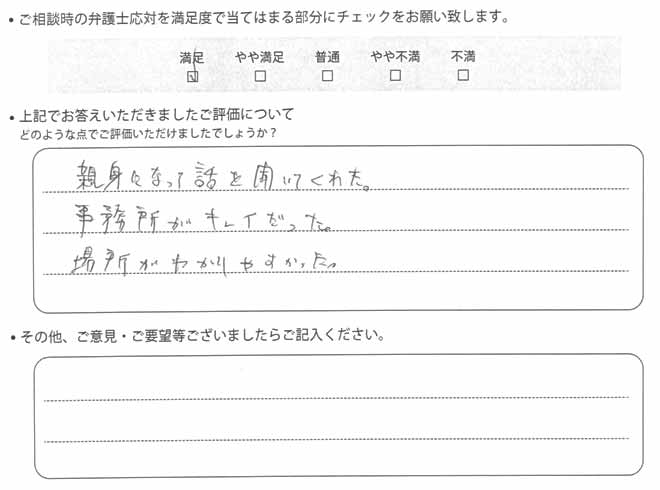 • ご相談時の弁護士応対を満足度で当てはまる部分にチェックをお願い致します。
満足 やや満足 普通 やや不満 不満
☑ □ □ □ □
• 上記でお答えいただきましたご評価について
どのような点でご評価いただけましたでしょうか？
親身になって話を聞いてくれた。
事務所がキレイだった。
場所がわかりやすかった。
• その他、ご意見・ご要望等ございましたらご記入ください。